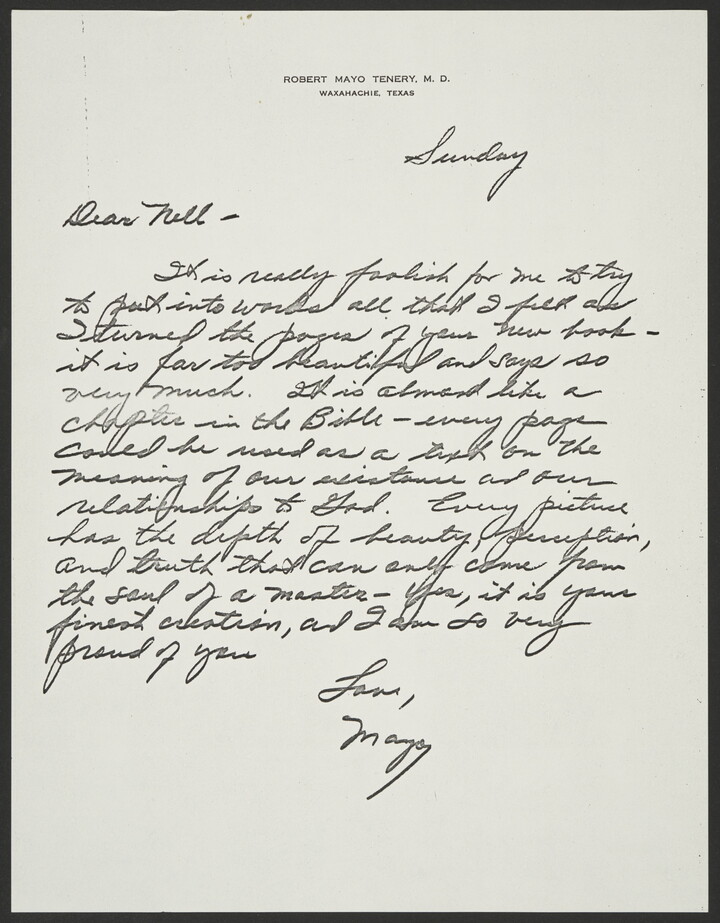 ROBERT MAYO TENERY, M. D.
WAXAHACHIE, TEXAS
Sunday
Dear Nell –
It is really foolish for me to try
to put into words all that I felt as
I turned the pages of your new book –
it is far too beautiful and says so
very much. It is almost like a
chapter in the Bible – every page
could be used as a text on the
meaning of our existence ad our
relationships to God. Every picture
has the depth of beauty, perception,
and truth that can only come from
the soul of a master – Yes, it is your
finest creation, ad I am so very
proud of you
Love,
Mayo